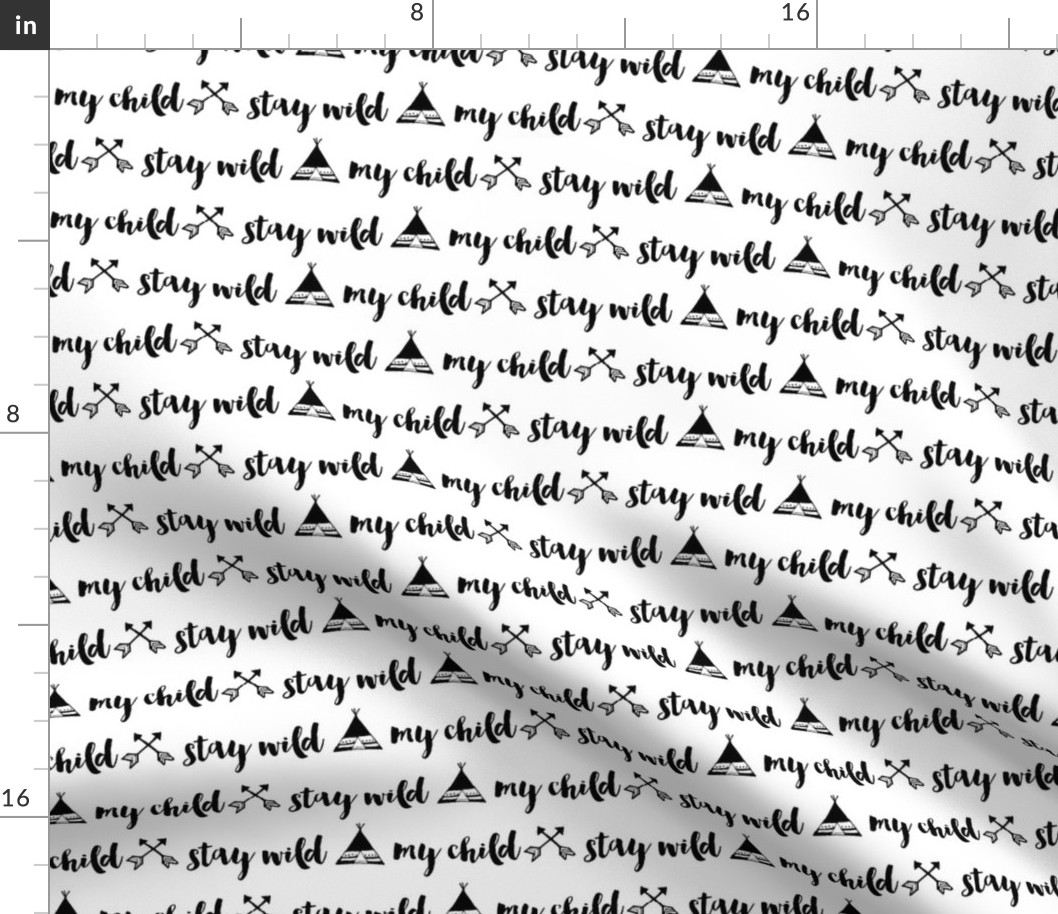 in 8 16
my child stay wild
my child stay wild my child stay wild
stay wild my child stay wild my child
my child stay wild my child stay wild
my child stay wild my child stay wild my child
stay wild my child stay wild my child stay wild
my child stay wild my child stay wild my child
8
stay wild my child stay wild my child stay wild
my child stay wild my child stay wild my child
stay wild my child stay wild my child stay wild
my child stay wild my child stay wild my child
child stay wild my child stay wild my child stay wild
my child stay wild my child stay wild my child
child stay wild my child stay wild my child stay wild
16
my child stay wild my child stay wild my child
child stay wild my child stay wild my child stay wild
my child stay wild my child stay wild